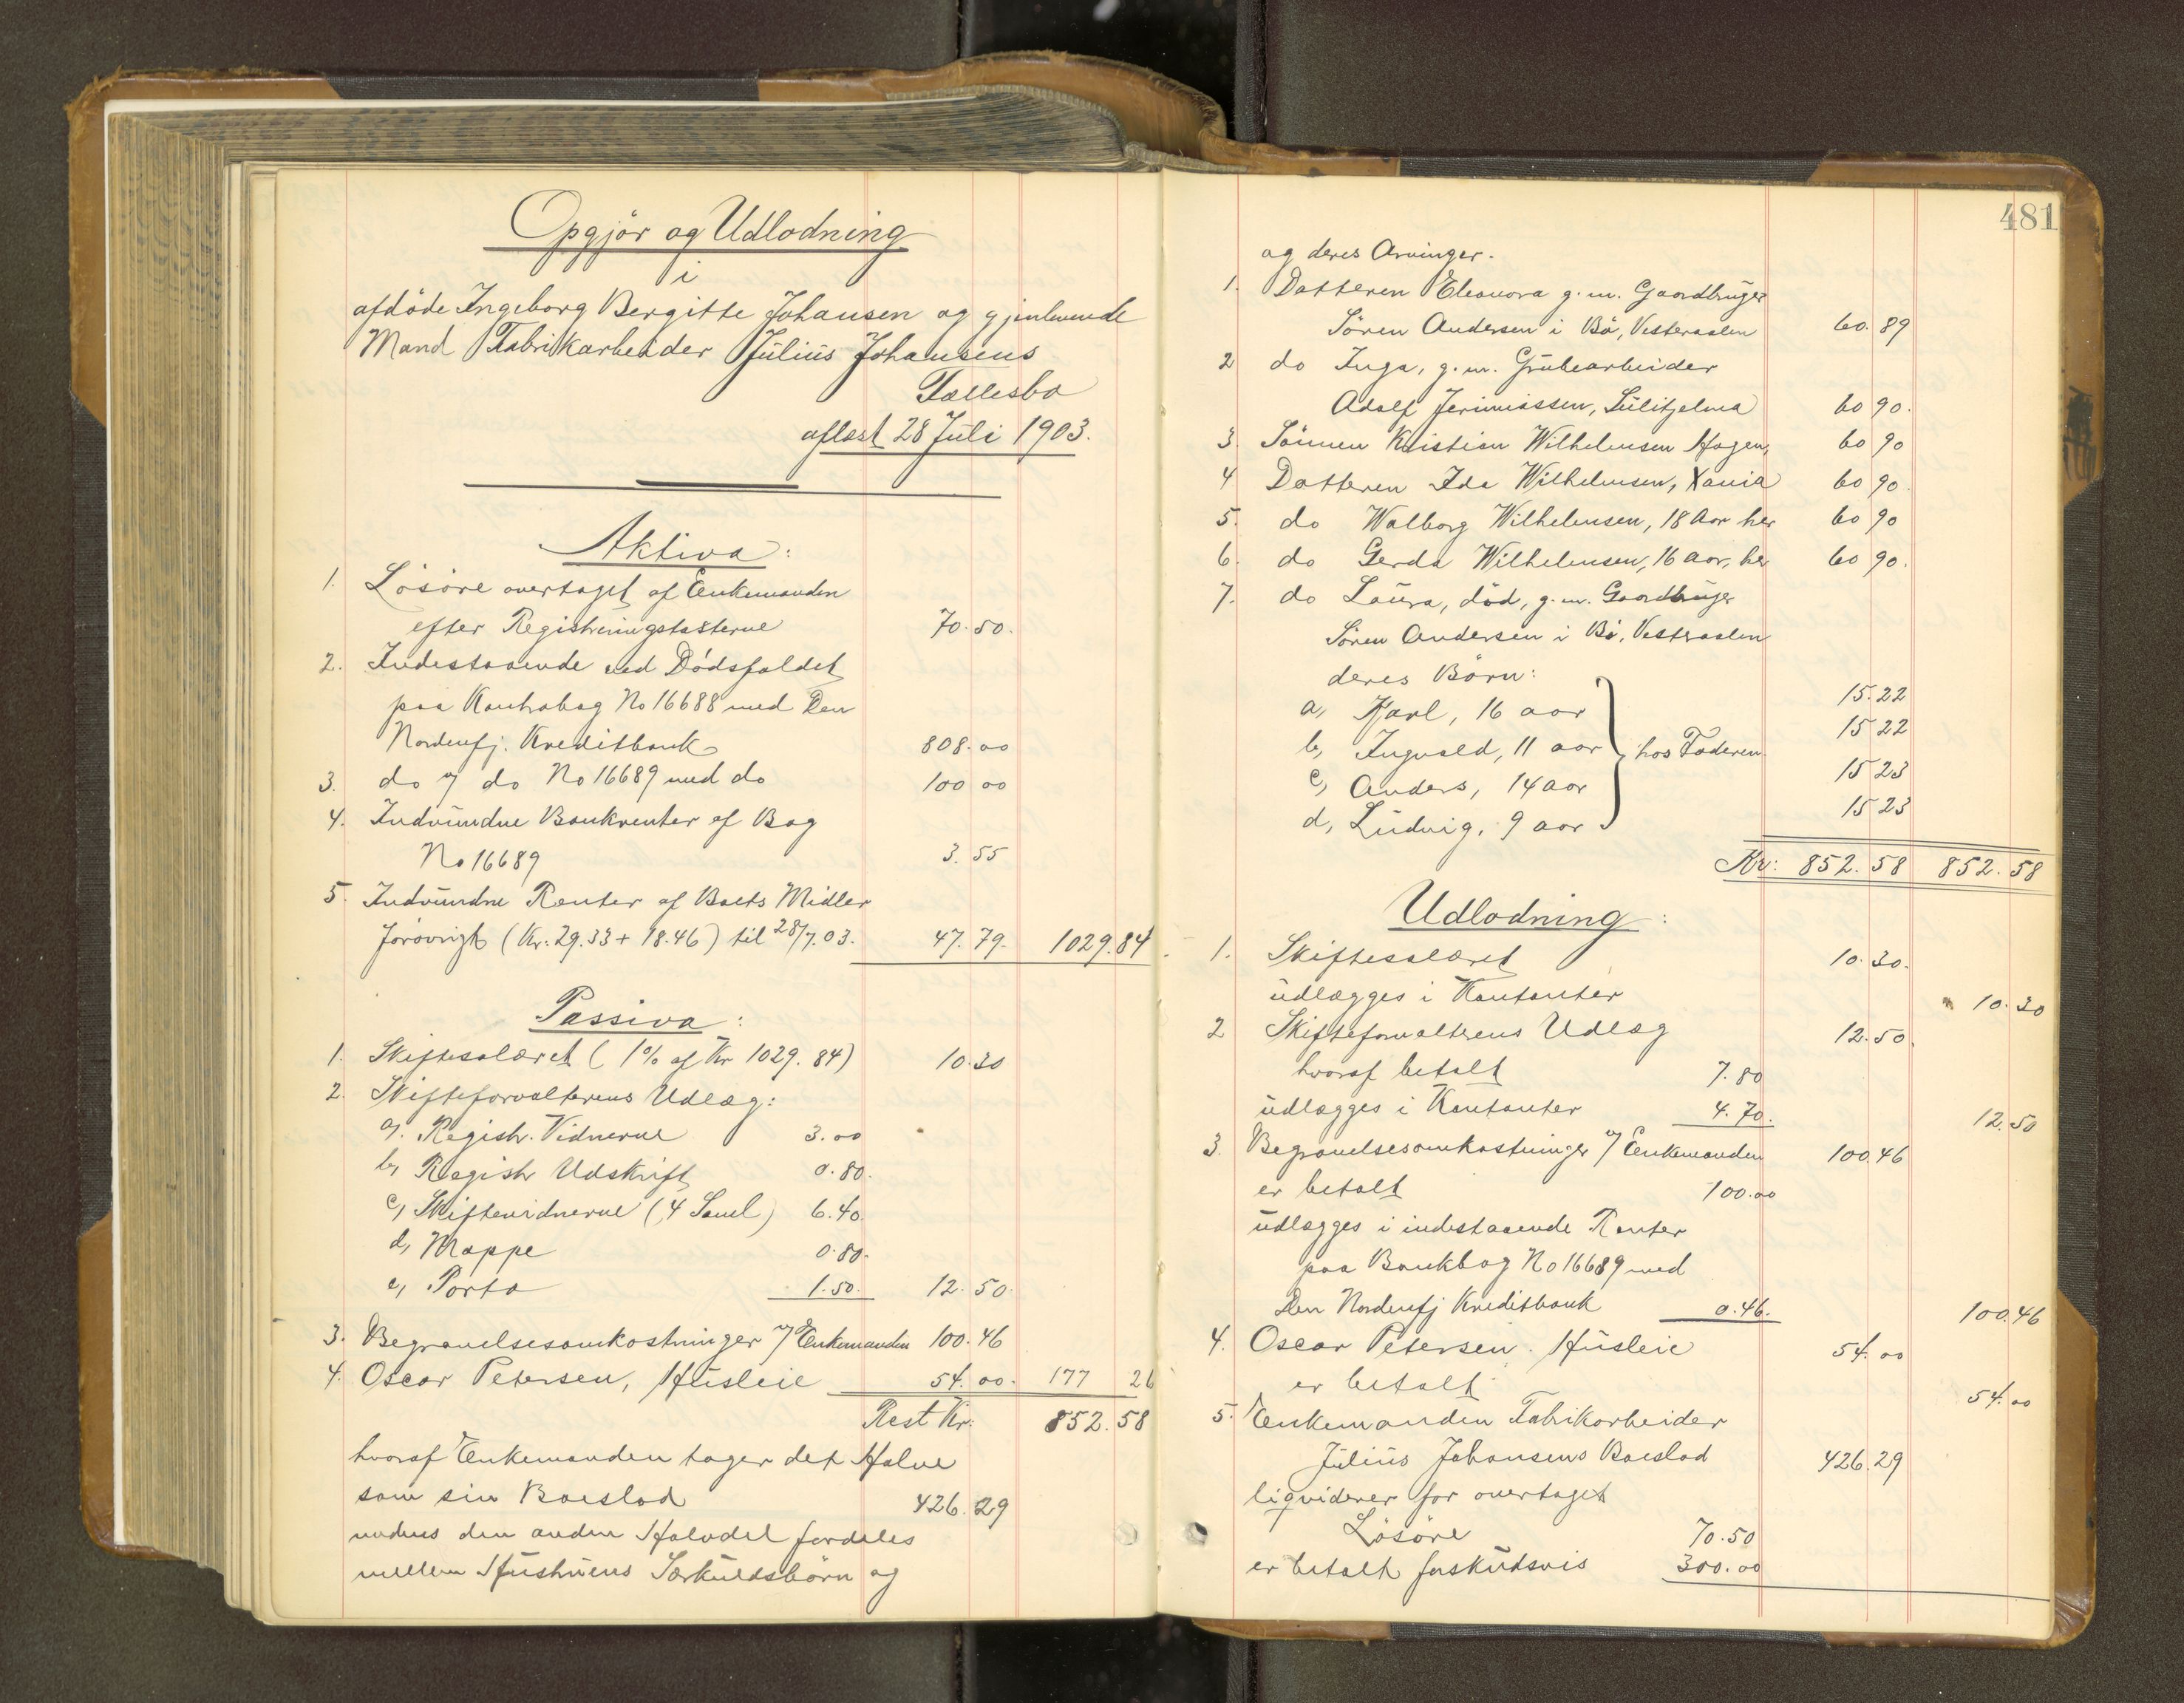 Opgjør og Udlodning
i
afdöde Ingeborg Bergitte Johansen og gjenlevende
Mand Fabrikarbeider Julius Johansens
Fællesbo
aflæst 28 Juli 1903.
Aktiva:
1. Lösöre overtaget af Enkemanden
efter Registreringstaxterne 70.50.
2. Indestaaende ved Dödsfaldet
paa Kontrabog No 16688 med Den
Nordenfj. Kreditbank 808.00
3. do af do No 16689 med do 100 00
4. Indvundne Bankrenter af Bog
No 16689 3.55
5. Indvundne Renter af Boets Midler
forövrigt (Kr: 29.33 + 18.46) til 28/7.03. 47.79. 1029.84
Passiva:
1. Skiftesalæret (1% af Kr 1029.84) 10.30
2. Skifteforvalterens Udlæg:
a. Registr. Vidnerne 3.00
b, Registr Udskrift 0.80.
c, Skiftevidnerne (4 Saml) 6.40.
d, Mappe 0.80.
e, Porto 1.50. 12.50.
3. Begravelsesomkostninger v/ Enkemanden 100.46
4. Oscar Petersen, Husleie 54.00. 177 26
Rest Kr: 852.58
hvoraf Enkemanden tager det Halve
som sin Boeslod 426.29
medens den anden Halvdel fordeles
mellem Hustruens Særkuldsbörn og
481
og deres Arvinger.
1. Datteren Eleonora g.m. Gaardbruger
Sören Andersen i Bö, Vesteraalen 60.89
2 do Inga, g.m. Grubearbeider
Adolf Jerimiassen, Sulitjelma 60 90.
3. Sönnen Kristian Wilhelmsen Hagen, 60 90
4 Datteren Ida Wilhelmsen, Xania 60 90.
5. do Walborg Wilhelmsen, 18 Aar her 60 90
6. do Gerda Wilhelmsen, 16 aar, her 60 90.
7. do Laura, död, g.m. Gaardbruger
Sören Andersen i Bö, Vestraalen
deres Börn:
a, Karl, 16 aar 15.22
b, Ingvald, 11 aar hos Faderen. 15 22
c, Anders, 14 aar 15 23
d, Ludvig, 9 aar 15 23
Kr: 852.58 852.58
Udlodning:
1. Skiftesalæret 10.30.
udlægges i Kontanter 10.30
2 Skifteforvalterens Udlæg 12.50.
hvoraf betalt 7.80
udlægges i Kontanter 4.70. 12.50
3. Begravelsesomkostninger v/ Enkemanden 100.46
er betalt 100.00
udlægges i indestaaende Renter
paa Bankbog No 16689 med
Den Nordenfj Kreditbank 0.46. 100.46
4. Oscar Petersen. Husleie 54.00
er betalt 54.00
5. Enkemanden Fabrikarbeider
Julius Johansens Boeslod 426.29
liqviderer for overtaget
Lösöre 70.50
er betalt forskudsvis 300.00